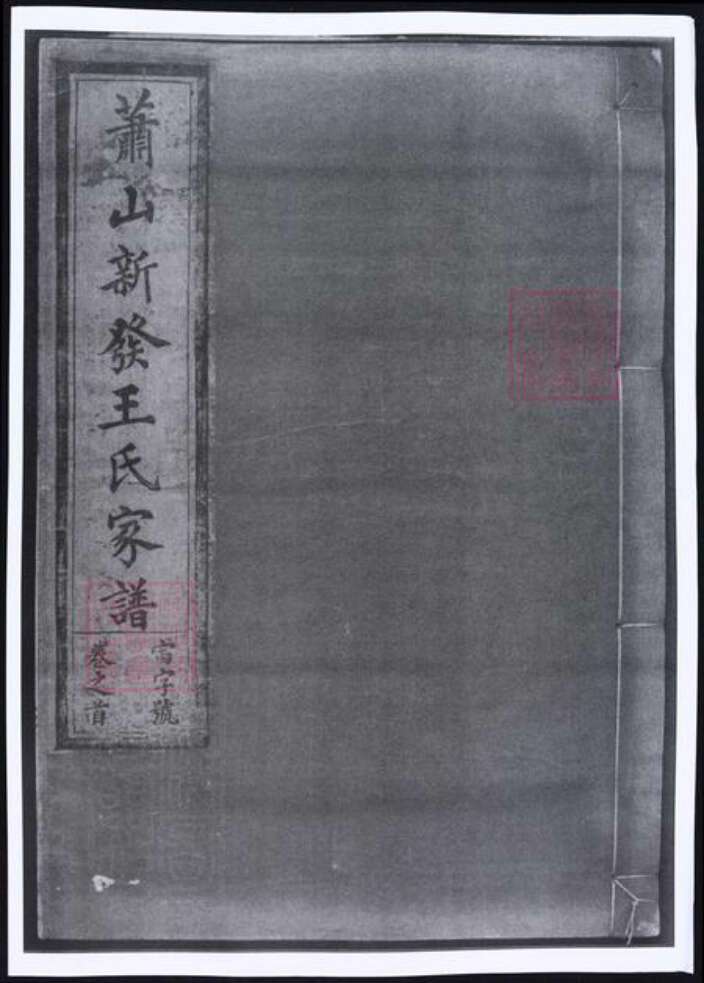 蕭山新發王氏家譜
當字號
卷之首